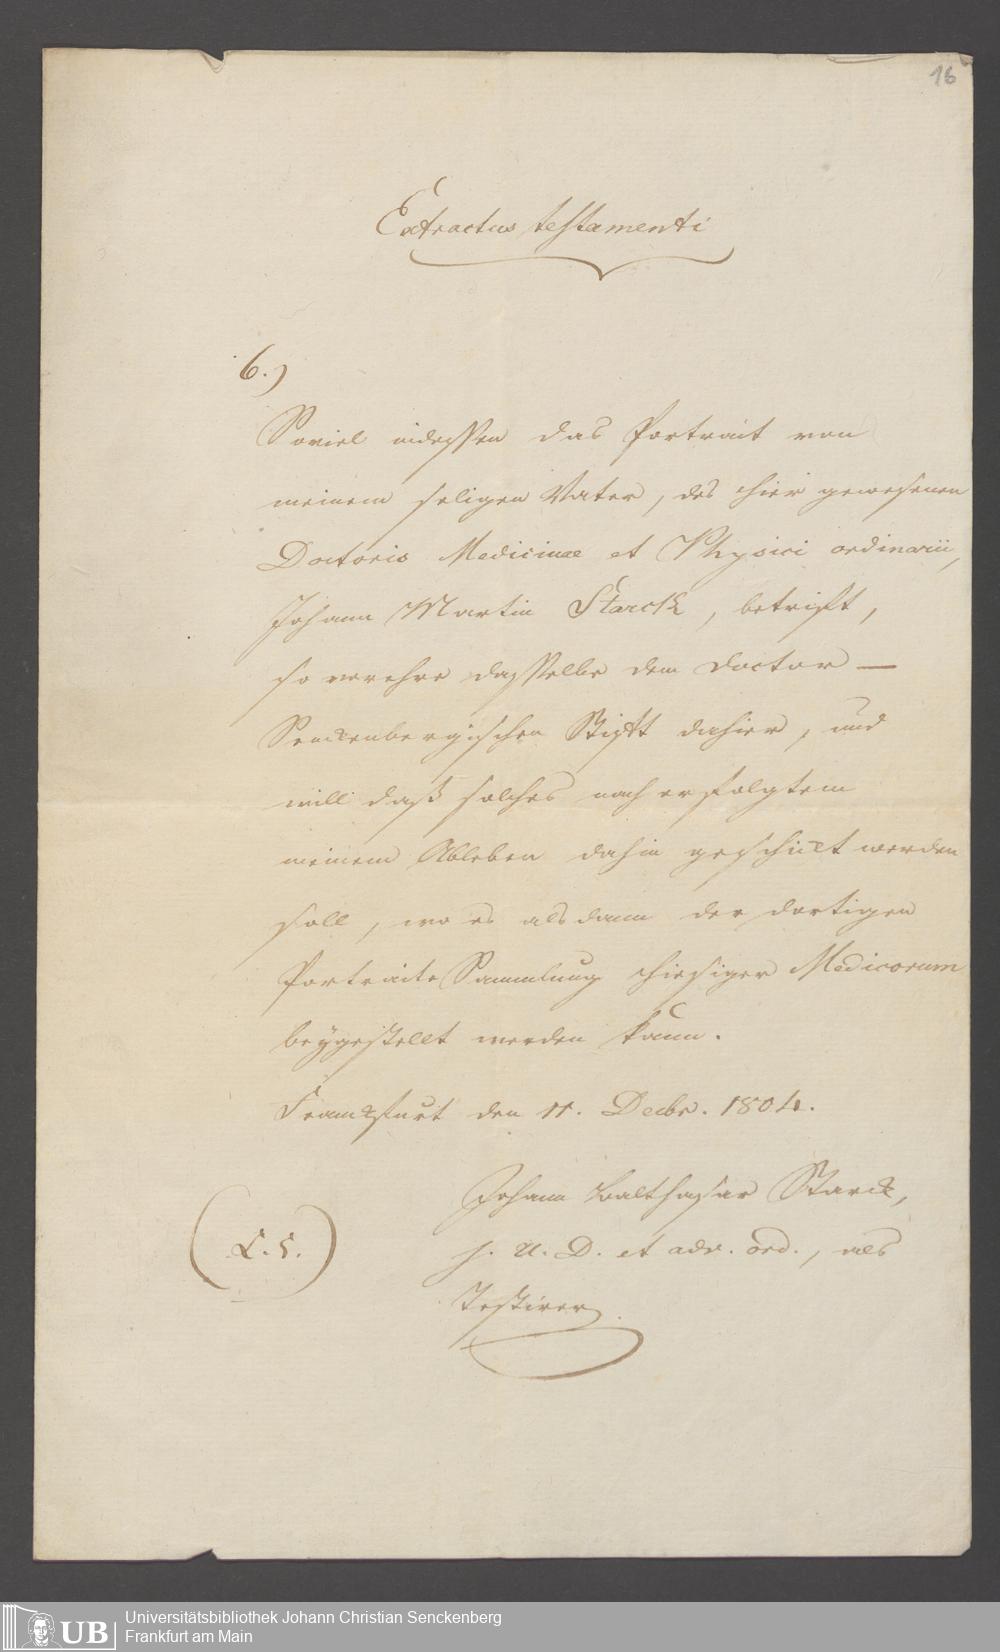 16
Extractus testamenti
6.)
Soviel indessen das Portrait von
meinem seligen Vater, des hier gewesenen
Doctoris Medicinae et Physici ordinarii,
Johann Martin Starck, betrift,
so verehre dasselbe dem Doctor –
Senckenbergischen Stift dahier, und
will daß solches nach erfolgtem
meinem Ableben dahin geschickt werden
soll, wo es alsdann der dortigen
Portraite Sammlung hiesiger Medicorum
beygestellt werden kann.
Franckfurt den 11. Decbr. 1804.
Johann Balthasar Starck,
(L. S.) J. U. D. et adv. ord., als
Testirer
UB Universitätsbibliothek Johann Christian Senckenberg
Frankfurt am Main